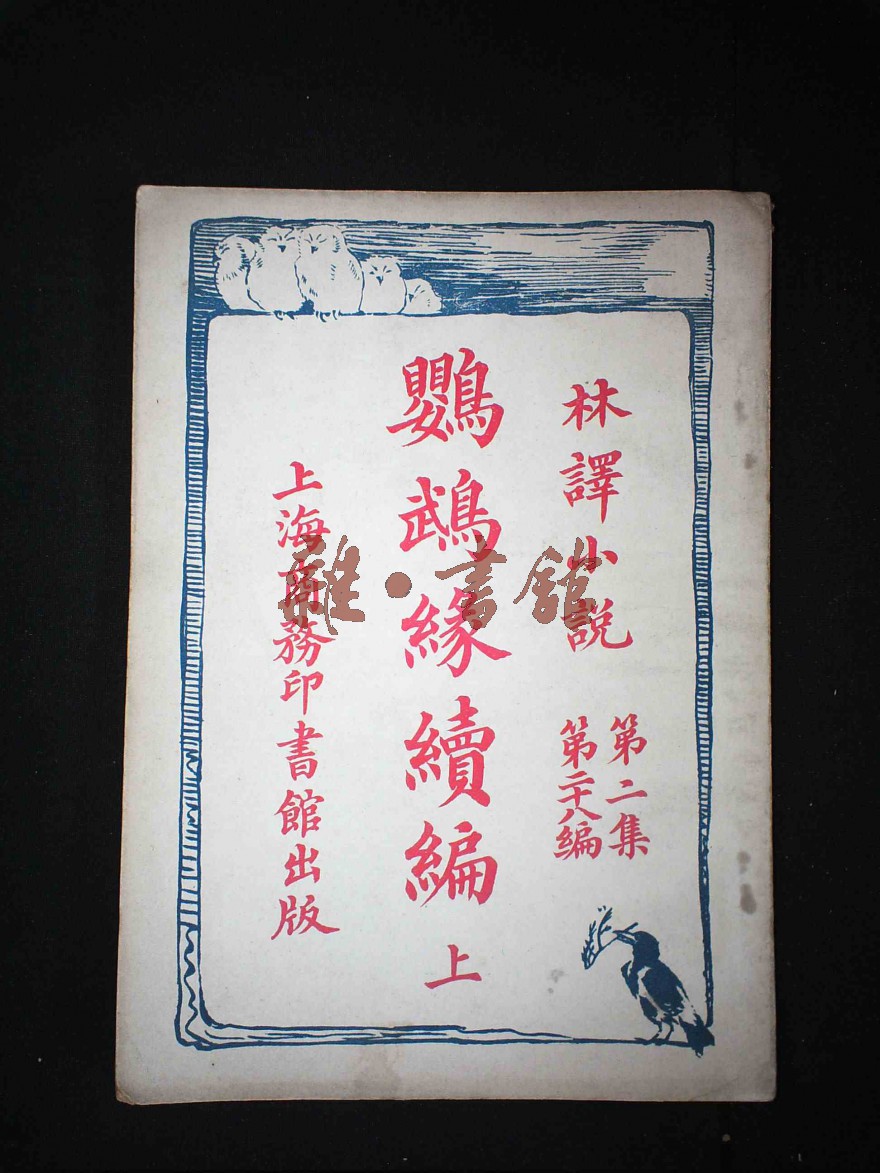 林譯小説
第二集
第二十八編
鸚鵡緣續編 上
上海商務印書館出版
雜·書館